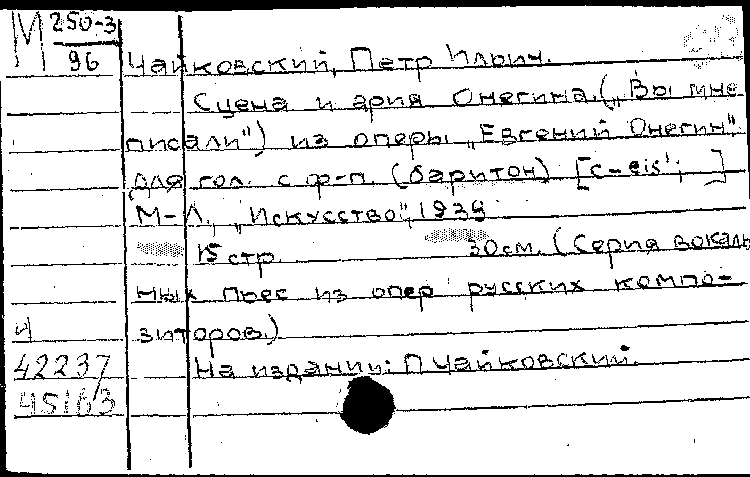 М 250-3
96
Чайковский, Петр Ильич.
Сцена и ария Онегина. („Вы мне
писали") из оперы „Евгений Онегин"
для гол. с ф-п. (баритон) [c-eis'; ]
М-Л, „Искусство", 1939
15 стр. 30 см. (Серия вокаль
ных пьес из опер русских компо-
зиторов.)
42237
На издании: П Чайковский.
45163